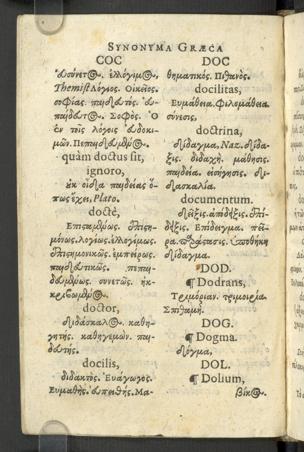 SYNONYMA GRÆCA
COC
εὐσύνετος. ἐλλόγιμος.
Themist. Λόγιος. Οἰκεῖος
σοφίας
Σοφὸς. Ὁ
ἐν τοῖς λόγοις εὐδοκι-
μῶν. Πεπαιδευμένος.
quàm doctus sit,
ignoro,
οὐκ οἶδα παιδείας ὅ-
πως ἔχει, Plato.
doctè,
Ἐπισταμένως. ἐπιςη-
μόνως. λογίως. ἐλλογίμως.
ἐπιςημονικῶς. ἐμπείρως.
παιδευτικῶς. πεπαι-
δευμένως. συνετῶς. ἠκ-
ριβωμένως.
doctor,
διδάσκαλος. καθη-
γητὴς. καθηγεμὼν. παι-
δευτὴς.
docilis,
διδακτὸς. Εὐάγωγος.
Εὐμαθὴς. εὐπειθὴς. Μα-
DOC
θηματικὸς. Πιθανὸς.
docilitas,
Εὐμάθεια. Φιλομάθεια.
σύνεσις.
doctrina,
δίδαγμα, Naz. δίδα-
ξις. διδαχὴ. μάθησις.
παιδεία. εἰσήγησις. δι-
δασκαλία.
documentum.
δεῖξις. ἀπόδειξις. ἐπί-
δειξις. Ἐπίδειγμα. πεῖ-
ρα. ὑποθήκη
δίδαγμα.
DOD.
¶ Dodrans,
Τριμόριον. τριμοιρία.
Σπιθαμὴ.
DOG.
¶ Dogma.
δόγμα,
DOL.
¶ Dolium,
βίκος.